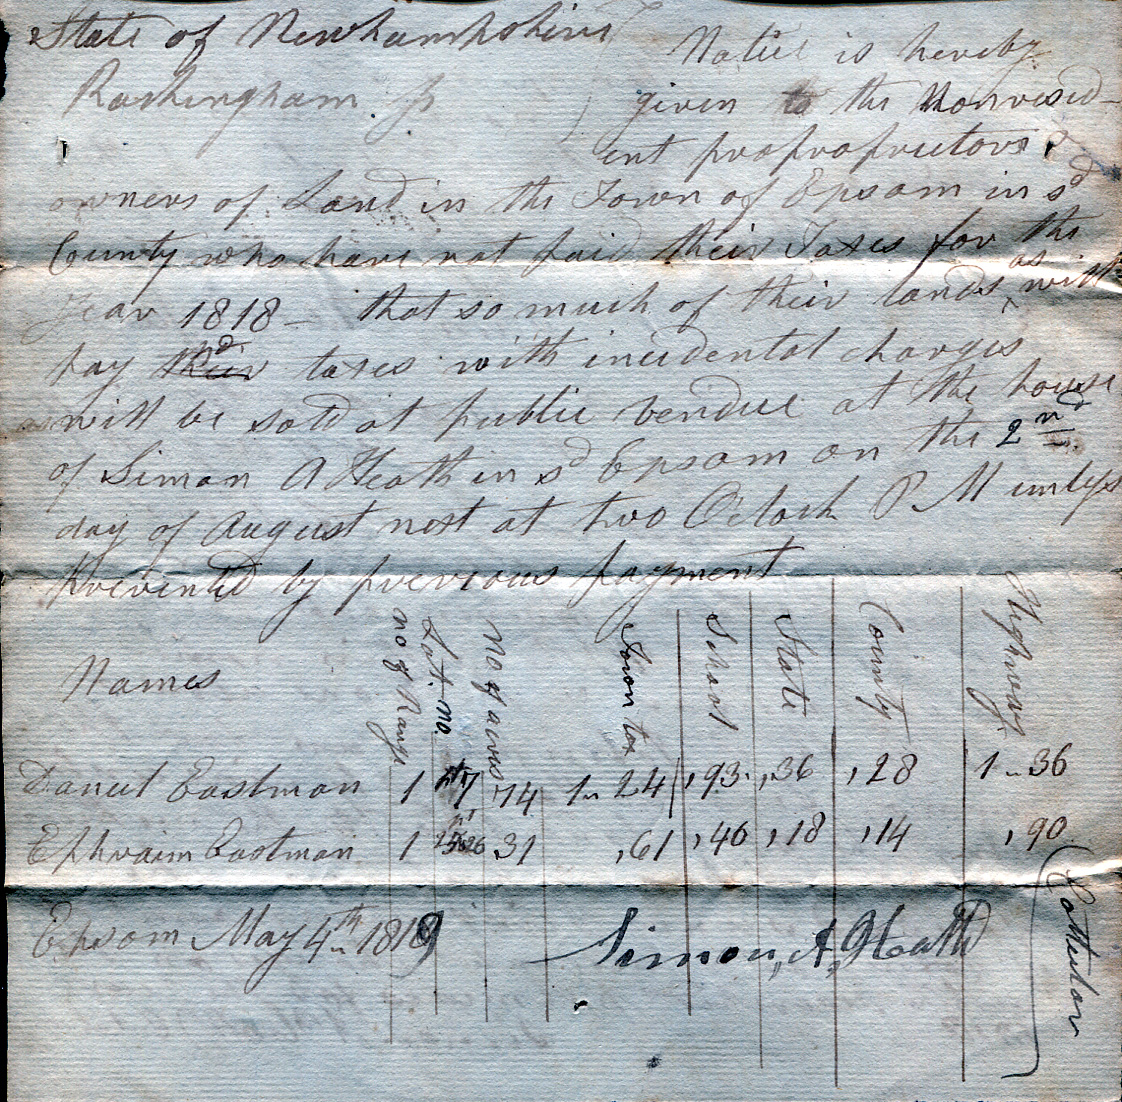 State of Newhampshire
Rockingham Ss
Notice is hereby
given to the Nonresid-
ent propropriutors &
owners of Land in the Town of Epsom in sd
County who have not paid their Taxes for the
Year 1818 - that so much of their lands as will
pay sd taxes with incidental charges
will be sold at public vendue at the house
of Simon A Heath in sd Epsom on the 2nd
day of August next at two Oclock P M unless
Prevented by previous payment
Names no of Range Lot. no. No of acres Town tax School State County Highway
Daniel Eastman 1 74 1 24 ,93 ,36 ,28 1 36
Ephraim Eastman 1 31 ,61 ,46 ,18 ,14 ,90
Epsom May 4th 1819 Simon, A, Heath
Collector